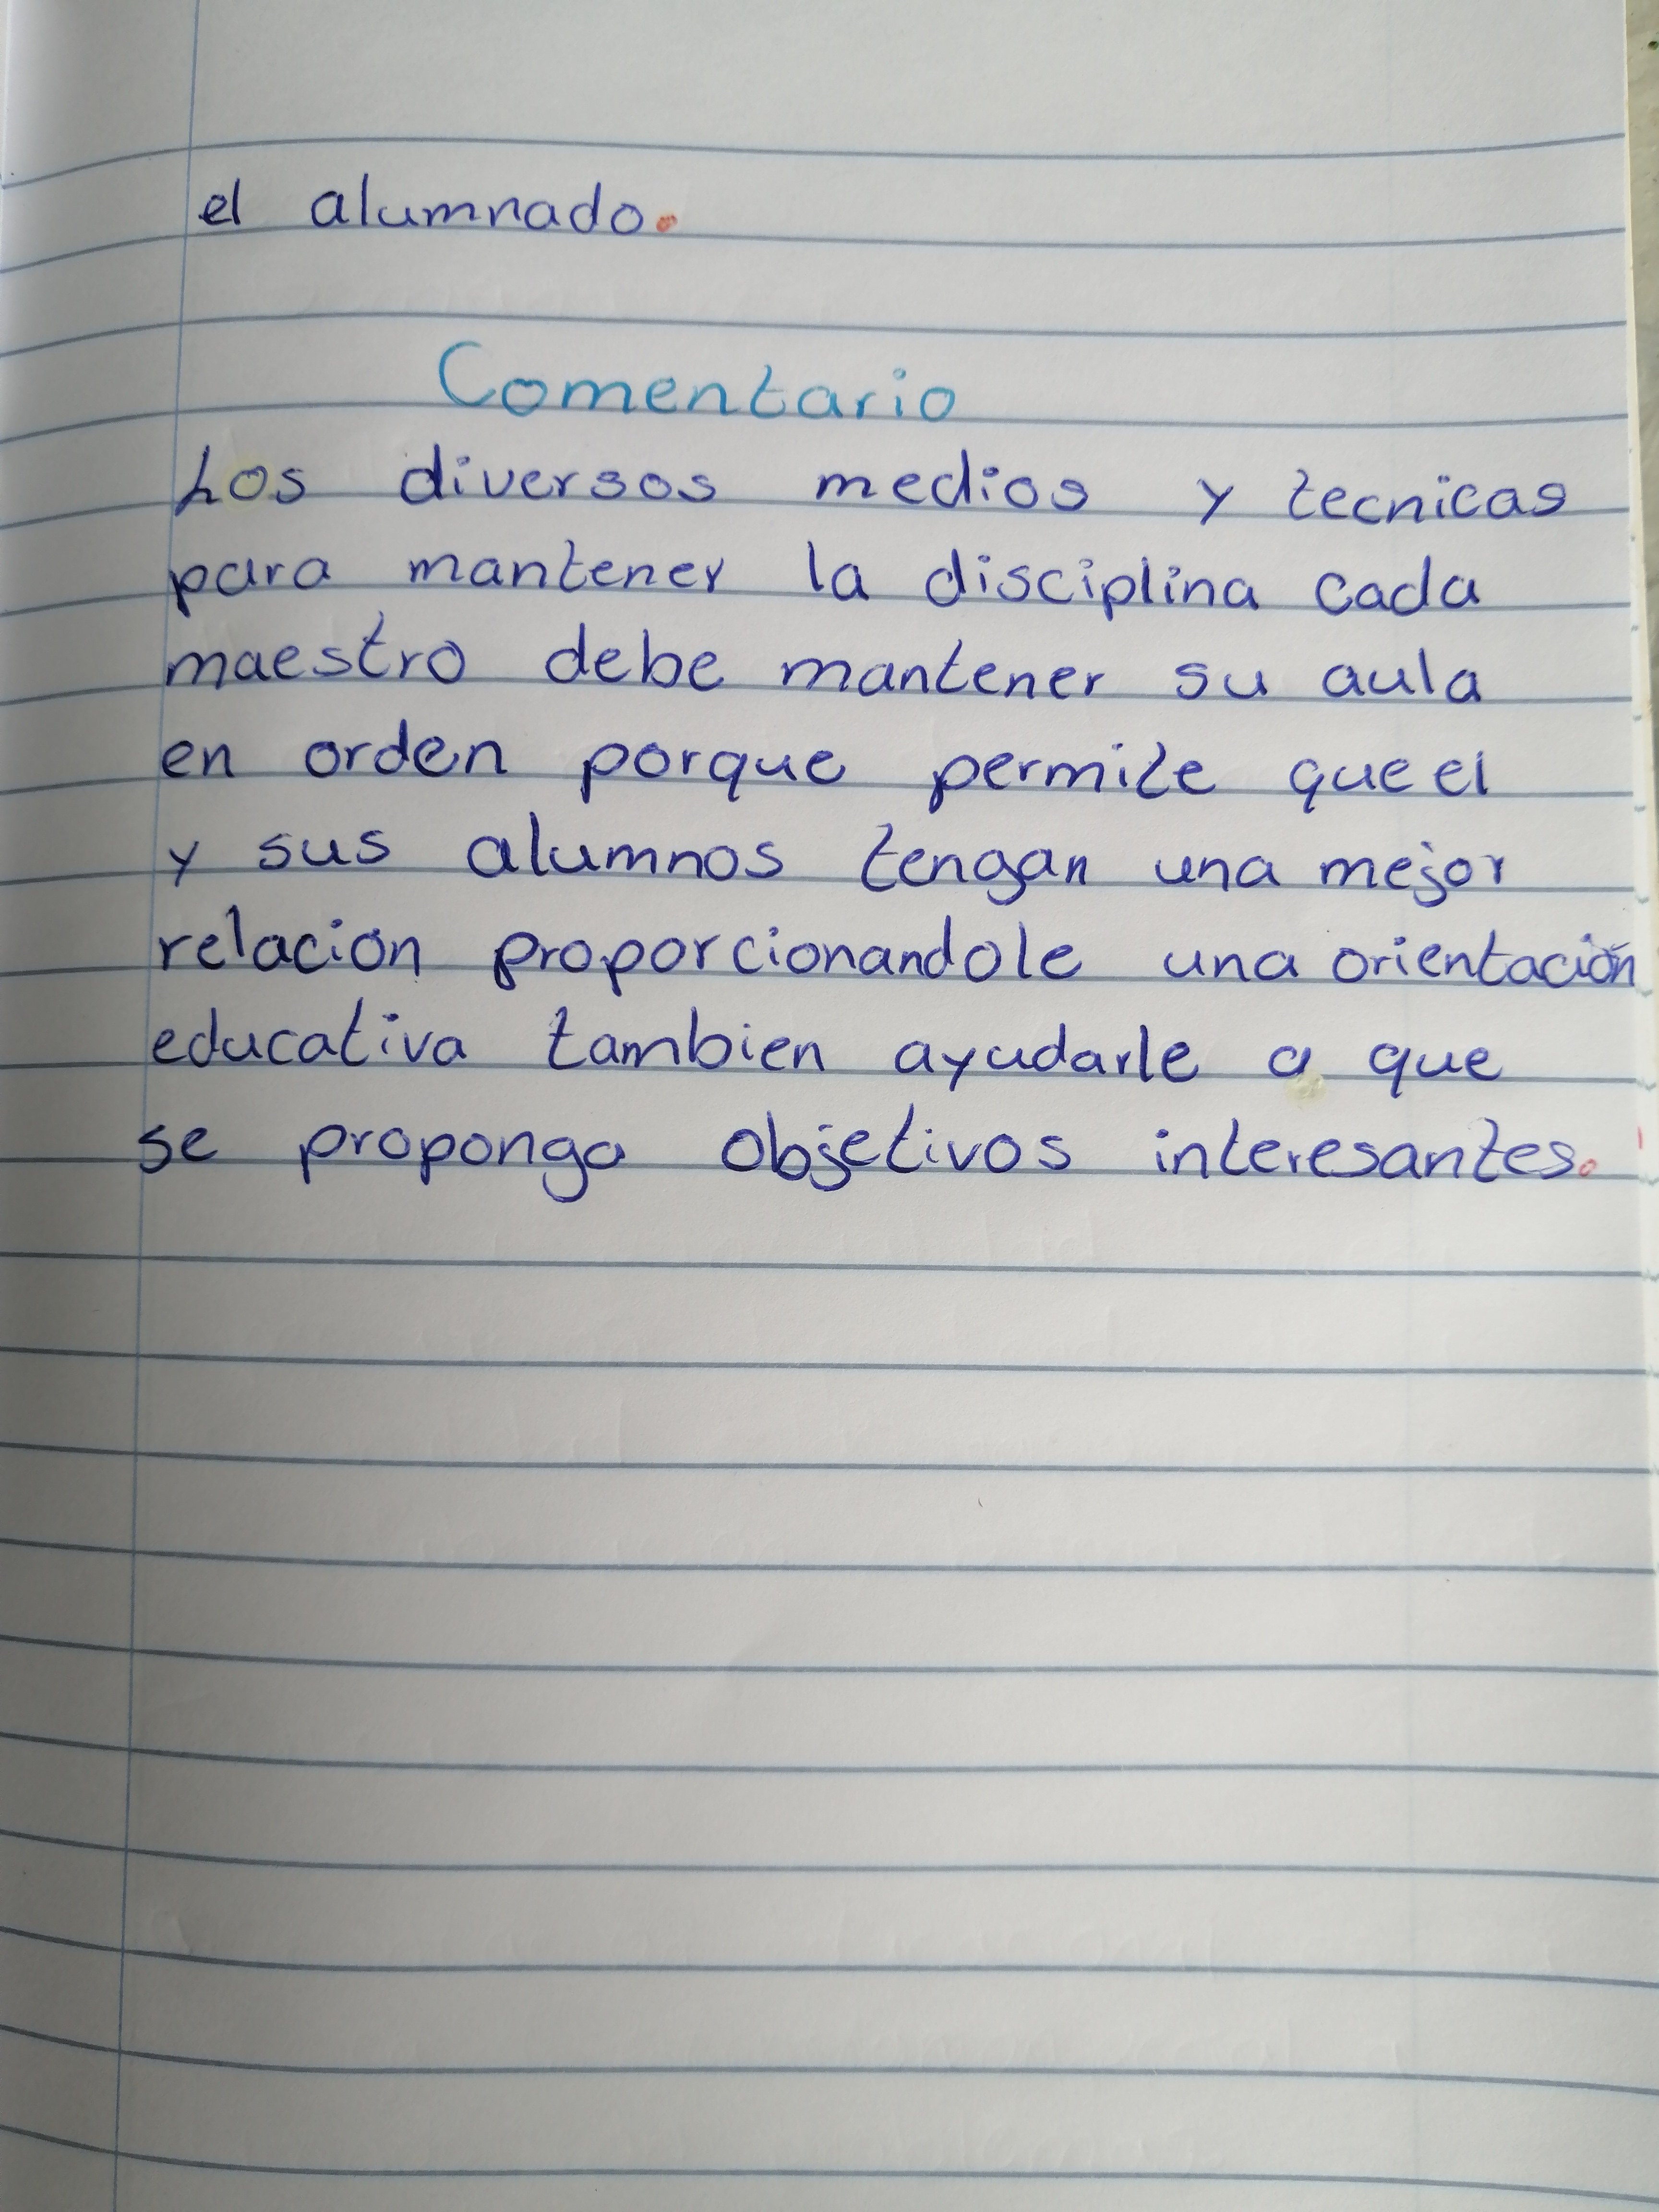 el alumnado.
Comentario
Los diversos medios y tecnicas
para mantener la disciplina cada
maestro debe mantener su aula
en orden porque permite que el
y sus alumnos tengan una mejor
relación proporcionandole una orientación
educativa tambien ayudarle a que
se proponga objetivos interesantes.